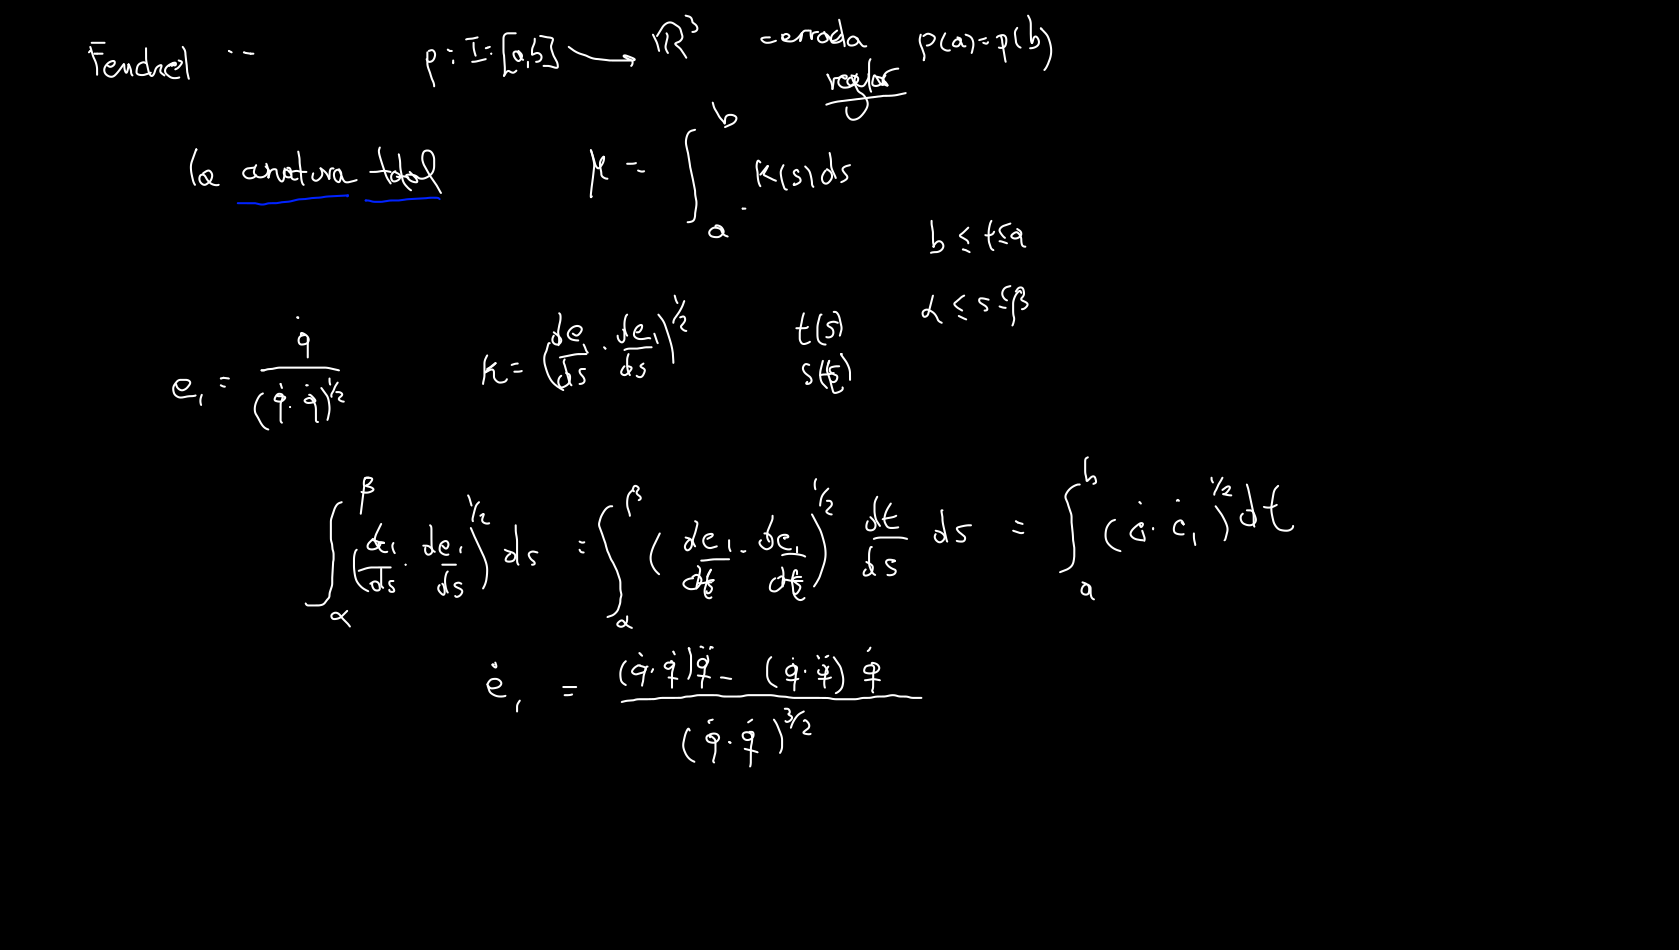 Fenchel ... p : I = [a,b] → ℝ³ cerrada p(a)=p(b)
reglar
la curvatura total μ = ∫_a^b k(s) ds
b ≤ t ≤ a
α ≤ s ≤ β
e₁ = q̇ / (q̇·q̇)^{1/2} k = (de₁/ds · de₁/ds)^{1/2} t(s)
s(t)
∫_α^β (de₁/ds · de₁/ds)^{1/2} ds = ∫_α^β (de₁/dt · de₁/dt)^{1/2} dt/ds ds = ∫_a^b (ė · ė₁)^{1/2} dt
ė₁ = ((q̇·q̇)q̈ - (q̇·q̈) q̇) / (q̇·q̇)^{3/2}